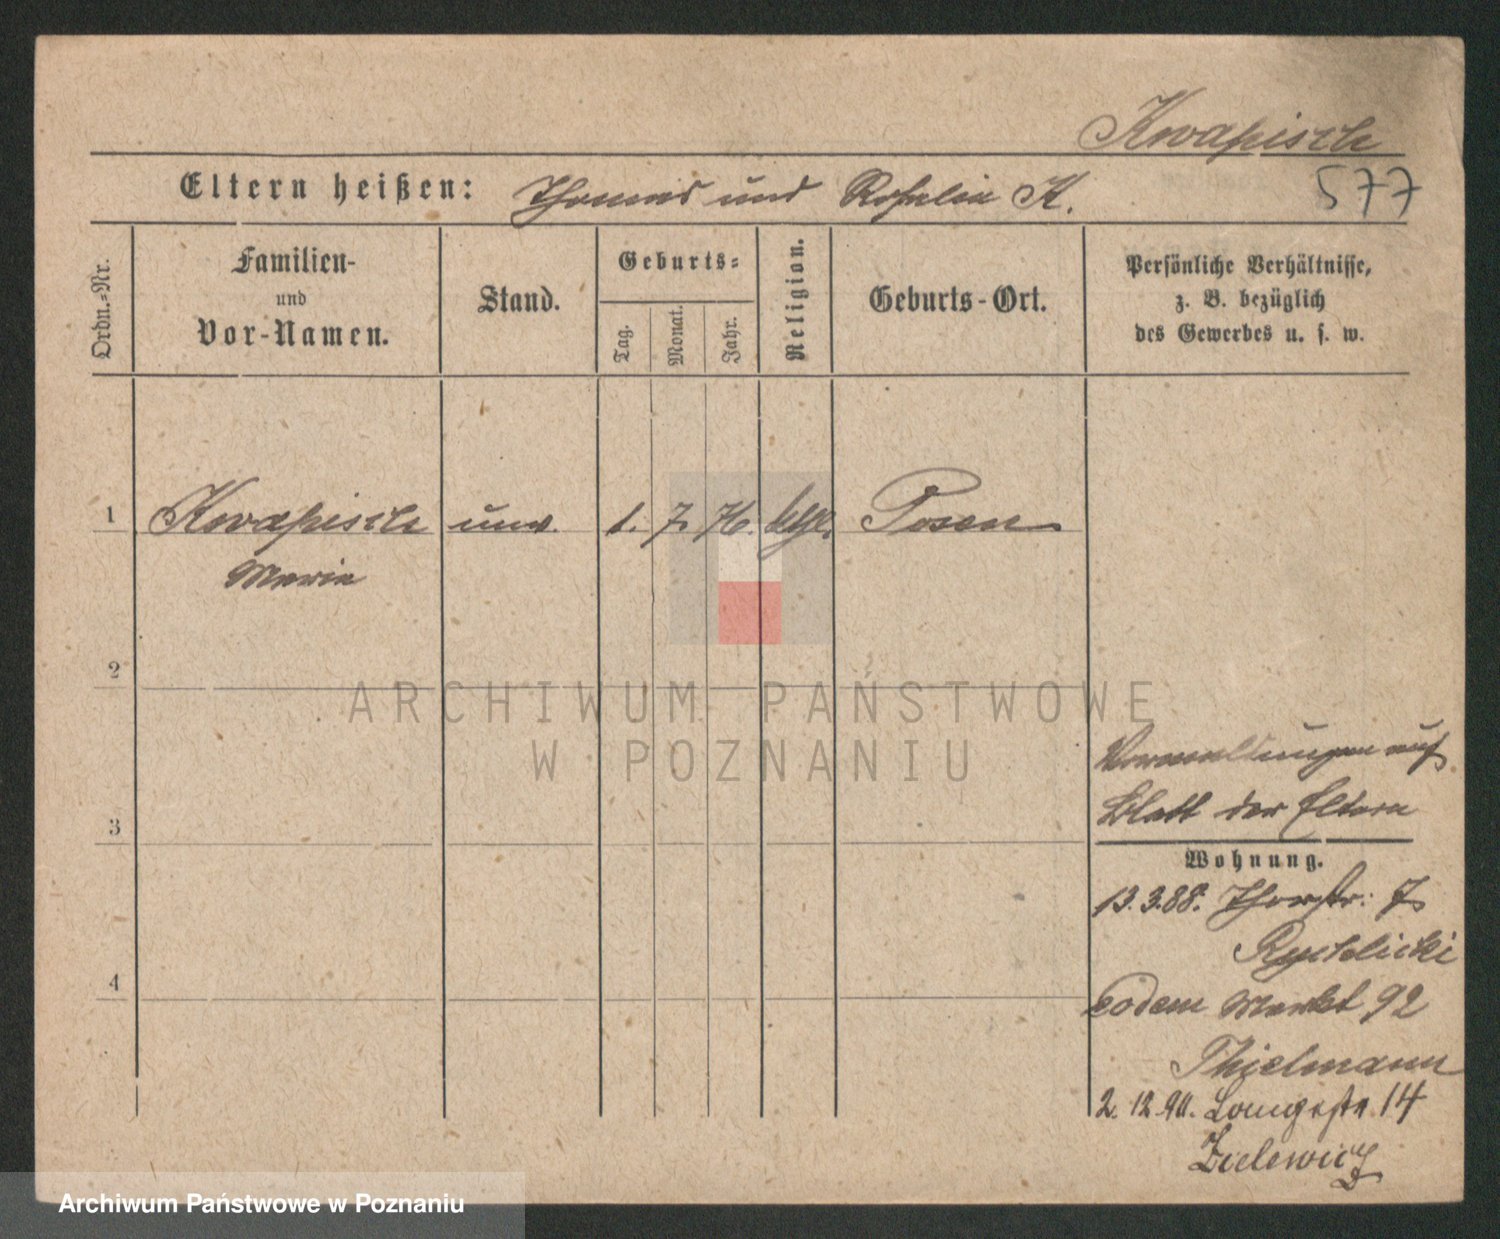 Kwapisch
577
Eltern heißen: Thomas und Rosalie K.
Ordn.-Nr.
Familien-
und
Vor-Namen.
Stand.
Geburts-
Tag.
Monat.
Jahr.
Religion.
Geburts-Ort.
Persönliche Verhältnisse,
z. B. bezüglich
des Gewerbes u. s. w.
1 Kwapisch unv. 1. 7. 76. kath. Posen
Marie
2
3
4
ARCHIWUM PAŃSTWOWE
W POZNANIU
auf
Blatt der Eltern
Wohnung.
13.3.88. Thorstr: 7
Rychlicki
eodem Markt 92
Thielmann
2.12.90. Langestr. 14
Zielewicz
Archiwum Państwowe w Poznaniu